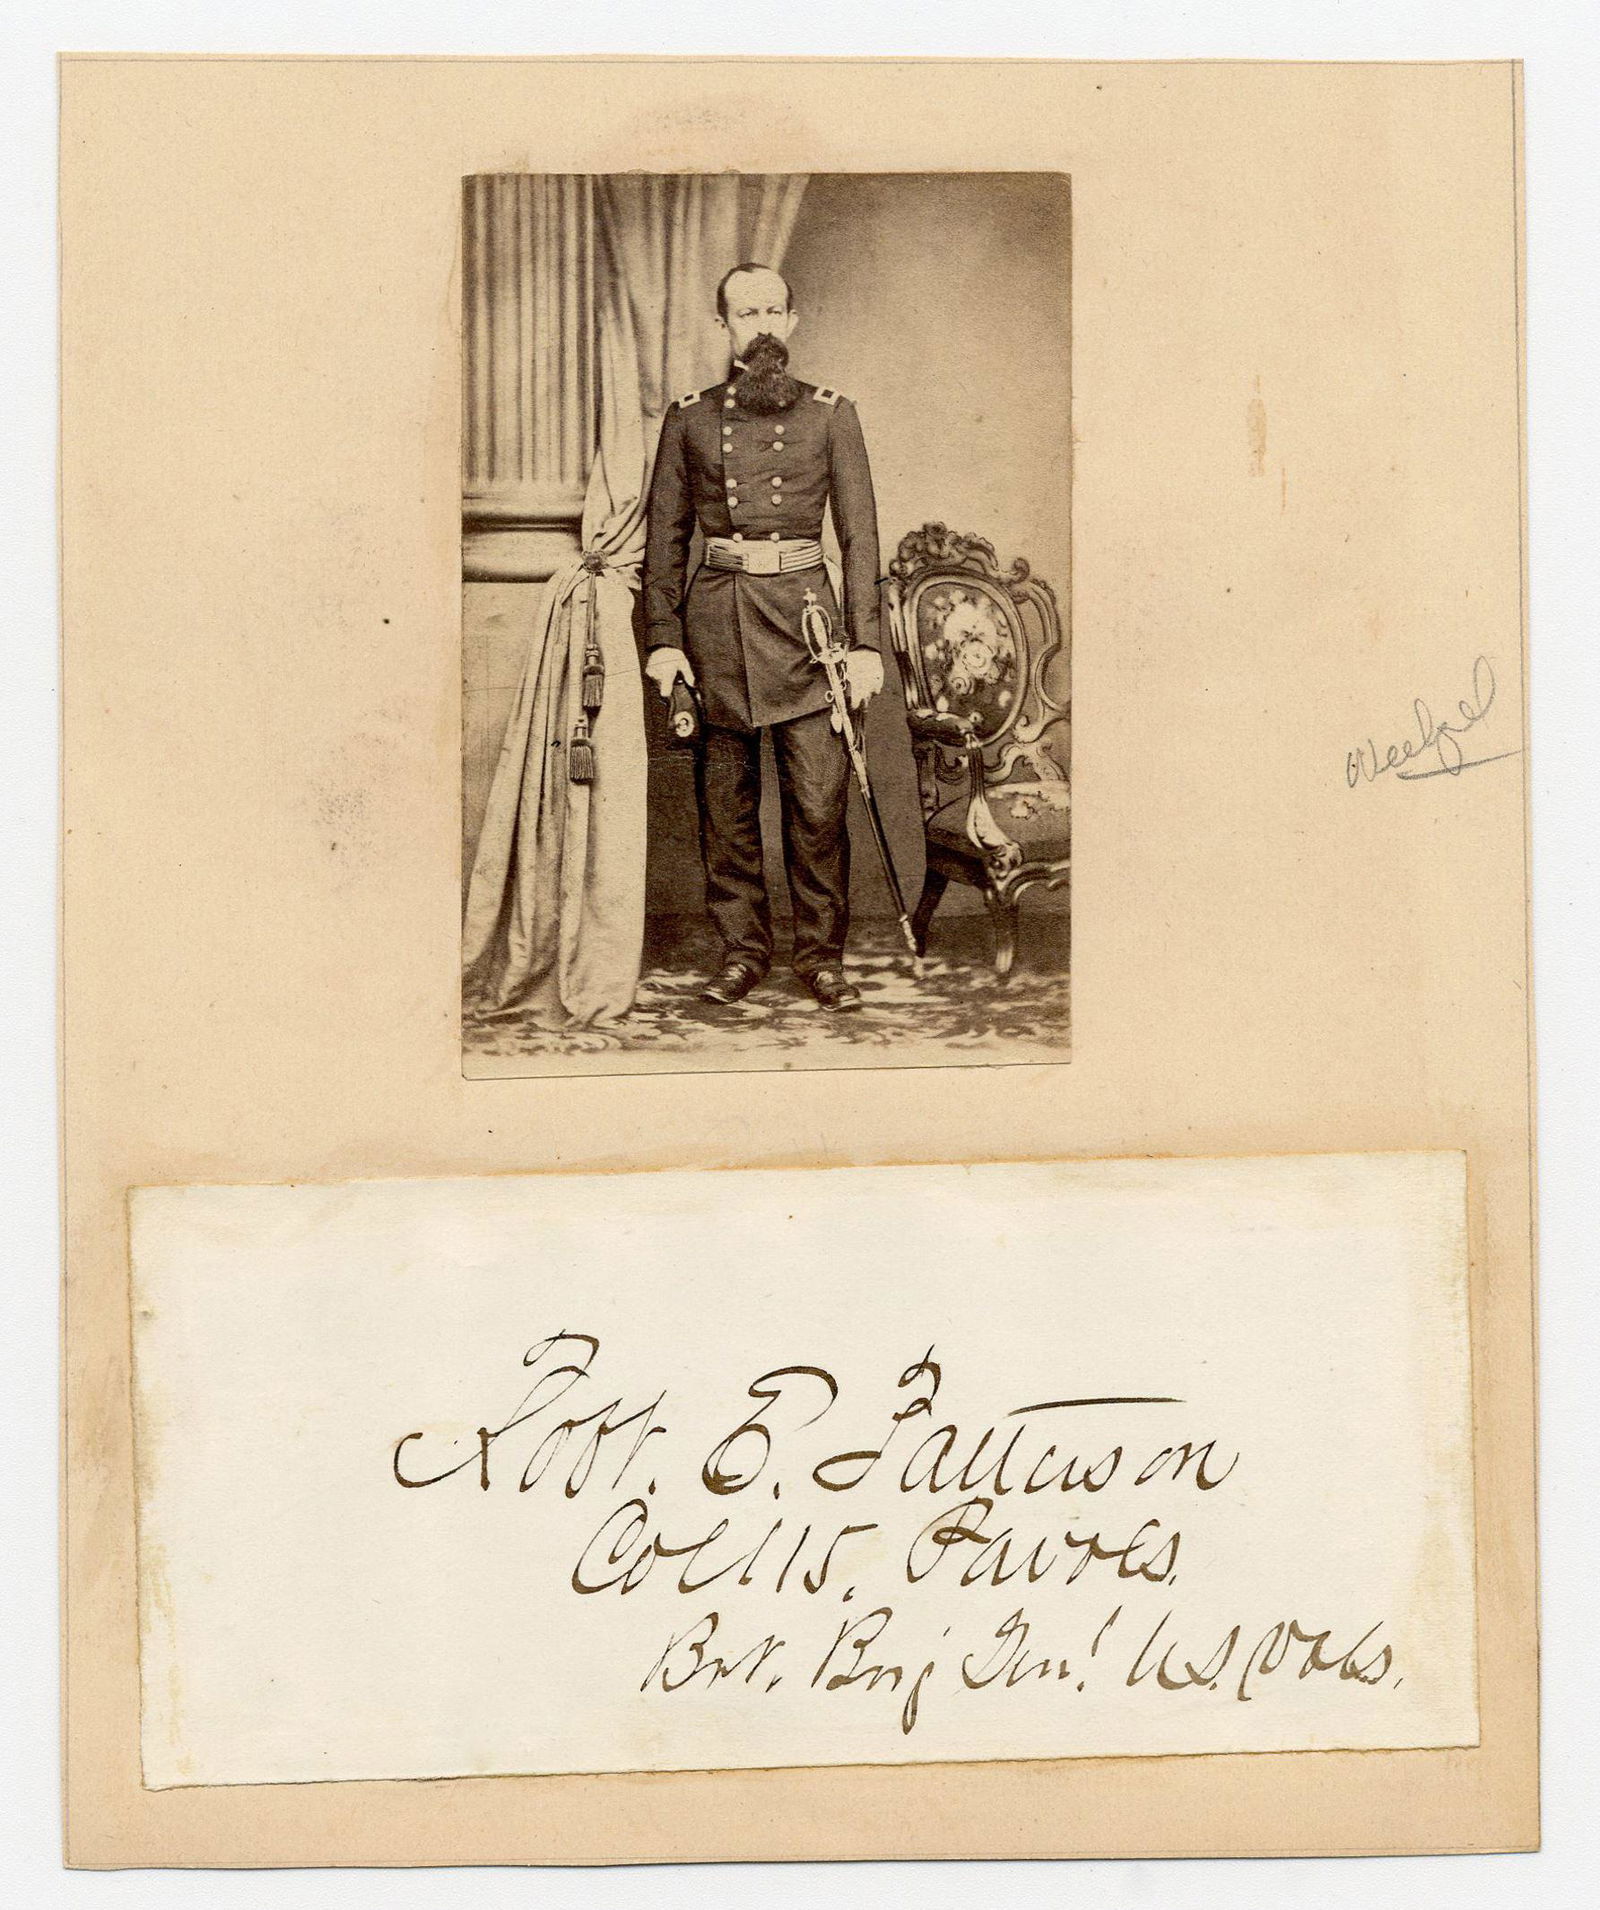 Robt. E. Patterson
Col 115. Pa vols.
Bvt. Brig Genl U.S. Vols.